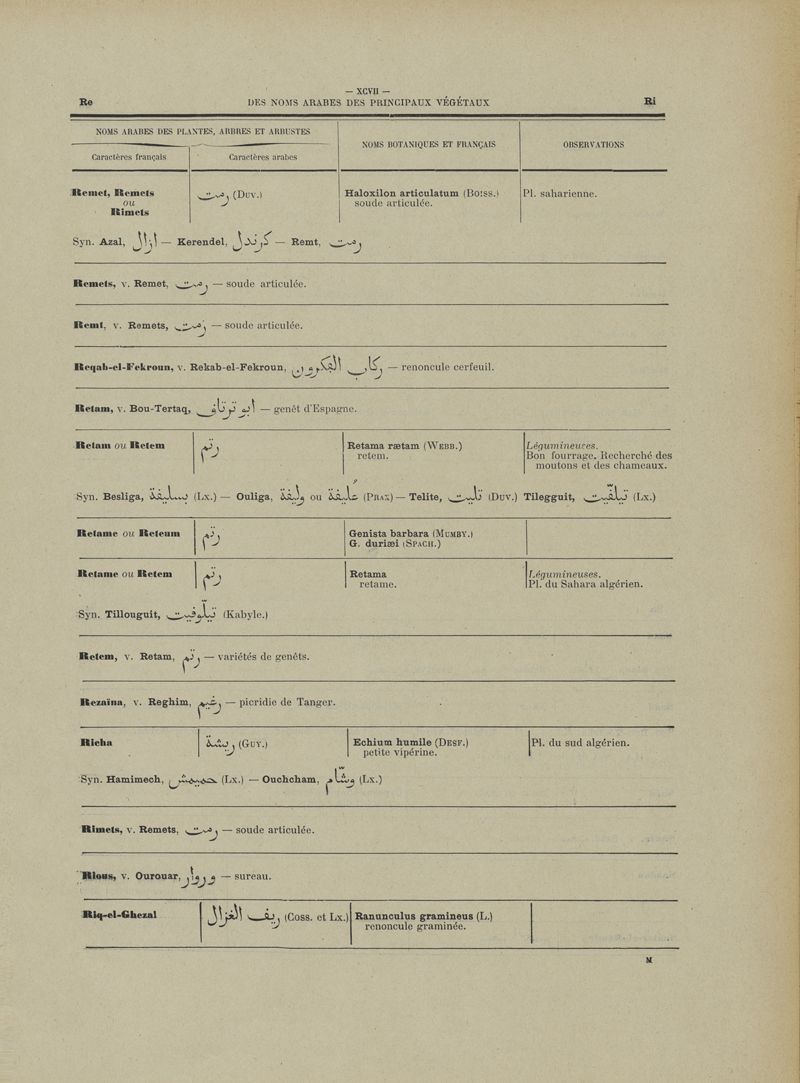 — XCVII —
Re DES NOMS ARABES DES PRINCIPAUX VÉGÉTAUX Ri
NOMS ARABES DES PLANTES, ARBRES ET ARBUSTES
NOMS BOTANIQUES ET FRANÇAIS OBSERVATIONS
Caractères français Caractères arabes
Remet, Remets رمت (Duv.) Haloxilon articulatum (Boiss.) Pl. saharienne.
ou soude articulée.
Rimets
Syn. Azal, ازال — Kerendel, كرندل — Remt, رمت
Remets, v. Remet, رمت — soude articulée.
Remt, v. Remets, رمت — soude articulée.
Reqab-el-Fekroun, v. Rekab-el-Fekroun, ركاب الفكرون — renoncule cerfeuil.
Retam, v. Bou-Tertaq, — genêt d'Espagne.
Retam ou Retem رتم Retama rætam (Webb.) Légumineuses.
retem. Bon fourrage. Recherché des
moutons et des chameaux.
Syn. Besliga, (Lx.) — Ouliga, ou (Prax) — Telite, (Duv.) Tilegguit, (Lx.)
Retame ou Reteum رتم Genista barbara (Mumby.)
G. duriæi (Spach.)
Retame ou Retem رتم Retama Légumineuses.
retame. Pl. du Sahara algérien.
Syn. Tillouguit, (Kabyle.)
Retem, v. Retam, رتم — variétés de genêts.
Rezaïna, v. Reghim, رغيم — picridie de Tanger.
Richa ريشة (Guy.) Echium humile (Desf.) Pl. du sud algérien.
petite vipérine.
Syn. Hamimech, (Lx.) — Ouchcham, وشّام (Lx.)
Rimets, v. Remets, رمت — soude articulée.
Rious, v. Ourouar, — sureau.
Riq-el-Ghezal ريق الغزال (Coss. et Lx.) Ranunculus gramineus (L.)
renoncule graminée.
M